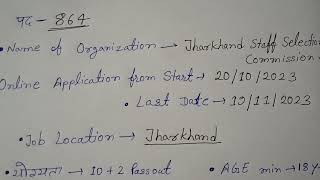 पद - 864
• Name of Organization → Jharkhand Staff Selection
Commission
Online Application from Start → 20/10/2023
• Last Date → 19/11/2023
• Job Location → Jharkhand
• योग्यता → 10+2 Passout
• AGE min → 18 y